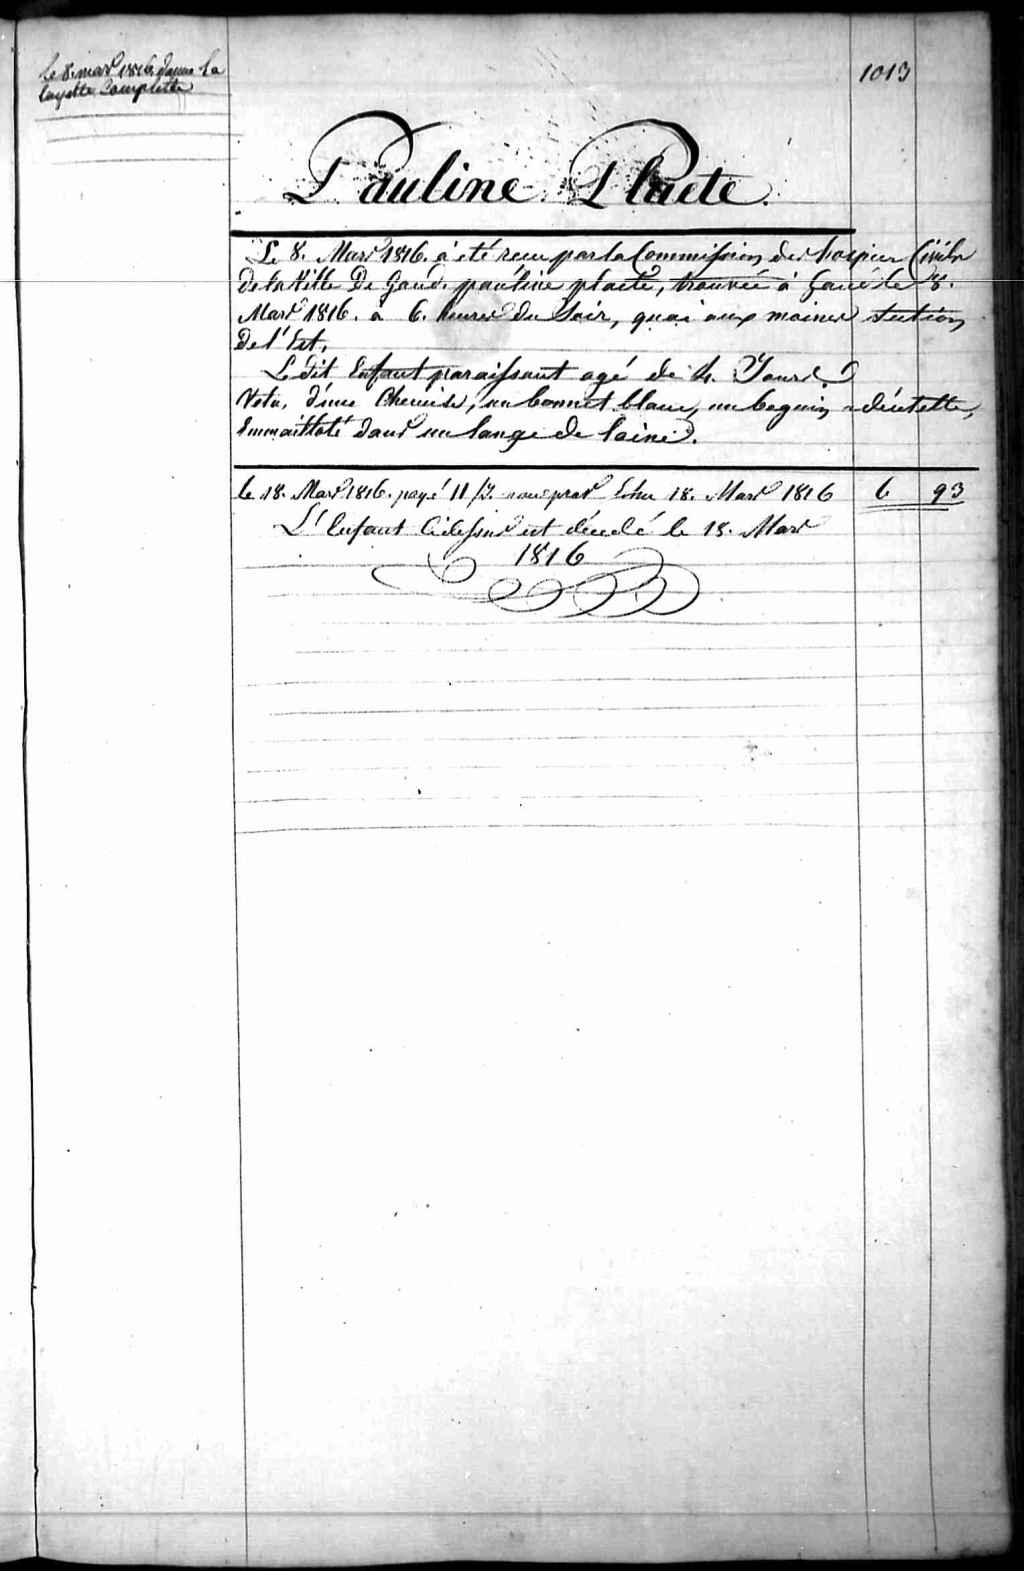 le 8. mars 1816. donné la
layette Complette
1013
Pauline Placte.
Le 8. Mars 1816. a été recu par la Commission des hospices Civils
de la Ville De Gand. pauline placte, trouvée à Gand le 8.
Mars 1816. a 6. heures du Soir, quai aux moines section
de l'Est.
Ledit Enfant paraissant agé de 4. Jours.
Vetu, d'une Chemise, un bonnet blanc, un beguin dentelle,
Emmaillotté dans un lange de laine.
le 18. Mars 1816. payé 11/J. 18. Mars 1816 6 93
L'Enfant Cidessus est décedé le 18. Mars
1816